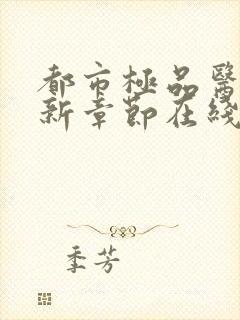 都市極品醫
新章節在綫
季芳